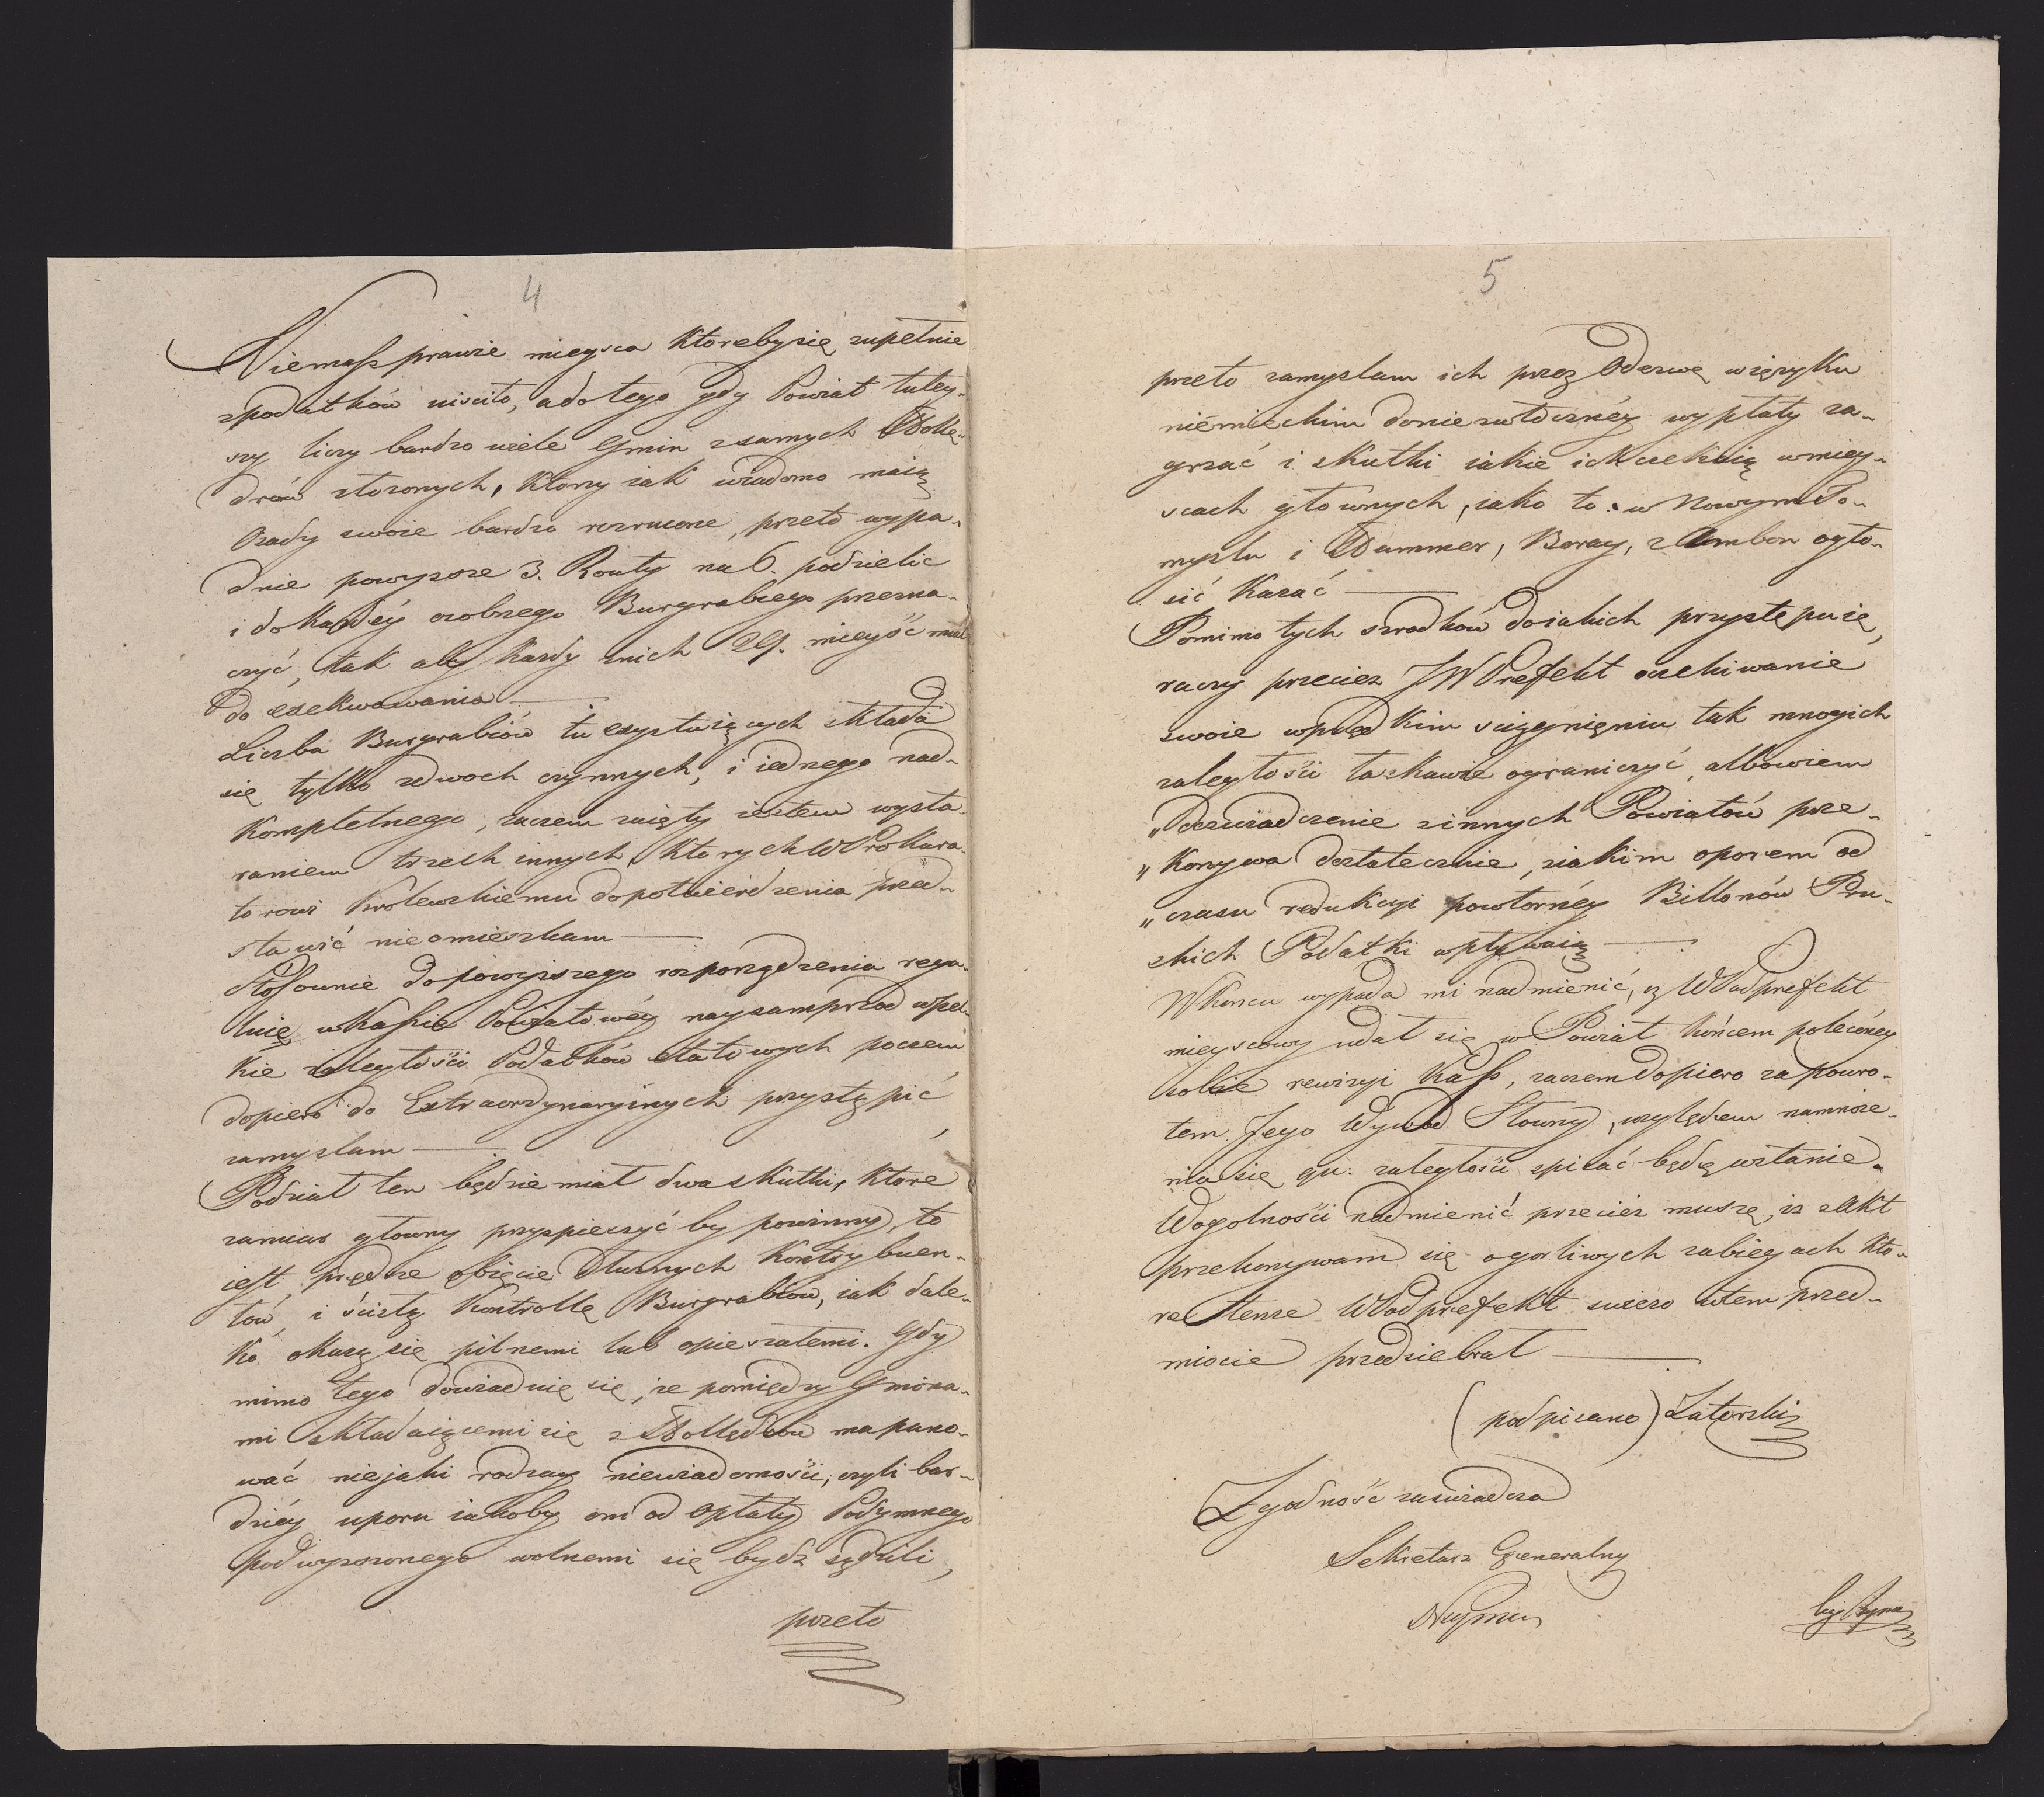 4
Niemasz prawie mieysca ktoreby się zupełnie
z podatków uiściło, a do tego gdy Powiat tutey-
szy liczy bardzo wiele Gmin z samych Hollę-
drów złozonych, ktorzy iak wiadomo maią
Osady swoie bardzo rozrucone, przeto wypa-
dnie powyzsze 3. Routy na 6. podzielic
i do każdéy osobnego Burgrabiego przezna-
czyć, tak aby każdy z nich 29. mieyść miał
do exekwowania
Liczba Burgrabiów tu exystuiących składa
się tylko z dwoch czynnych, i iednego nad-
kompletnego, zaczem zaięty iestem wysta-
raniem trzech innych, ktorych W Prokura-
torowi Krolewskiemu do potwierdzenia przed-
stawić nieomieszkam
Stosownie do powyższego rozporządzenia regu-
luię w Kassie Powiatowéy naysamprzod wszel-
kie zaległości Podatków etatowych poczem
dopiero do Extraordynaryinych przystąpić
zamyslam
Podział ten będzie miał dwa skutki, ktore
zamiar głowny przyspieszyć by powinny, to
iest prędsze obięcie dłuznych Kontrybuen-
tów, i scisłą kontrollę Burgrabiów, iak dale-
ko okazą się pilnemi lub opieszałemi. Gdy
mimo tego dowiaduię się, ze pomiędzy Gmina-
mi składaiącemi się z Hollędrów ma pano-
wać niejaki rodzay niewiadomości, czyli bar-
dziéy uporu iakoby oni od opłaty Podymnego
podwyzszonego wolnemi się bydź sądzili,
przeto
5
przeto zamyslam ich przez Odezwę w ięzyku
niemieckim do niezwłocznéy wypłaty za-
grzać i skutki iakie ich czekaią w miey-
scach głownych, iako to: w Nowym To-
myslu i Hammer, Boruy, z Ambon ogło-
sić kazać
Pomimo tych srodków do iakich przystępuię,
raczy przeciez JW Prefekt oczekiwanie
swoie w prędkim sciągnięniu tak mnogich
zaległości łaskawie ograniczyć, albowiem
„doswiadczenie z innych Powiatów prze-
„konywa dostatecznie, z iakim oporem od
„czasu redukcyi powtornéy Billonów Pru-
skich Podatki wpływaią
W koncu wypada mi nadmienić, iz W Podprefekt
mieyscowy udał się w Powiat końcem poleconey
sobie rewizyi Kass, zaczem dopiero za powro-
tem Jego Wywod Słowny, względem namnoze-
nia się qu. zaległości spisać będę w stanie.
Wogolności nadmienić przecież muszę, iz z Akt
przekonywam się o gorliwych zabiegach kto-
re tenze W Podprefekt swiezo w tem przed-
miocie przedsiebrał
(podpisano) Zatorski
Zgodność zaswiadcza
Sekretarz Generalny